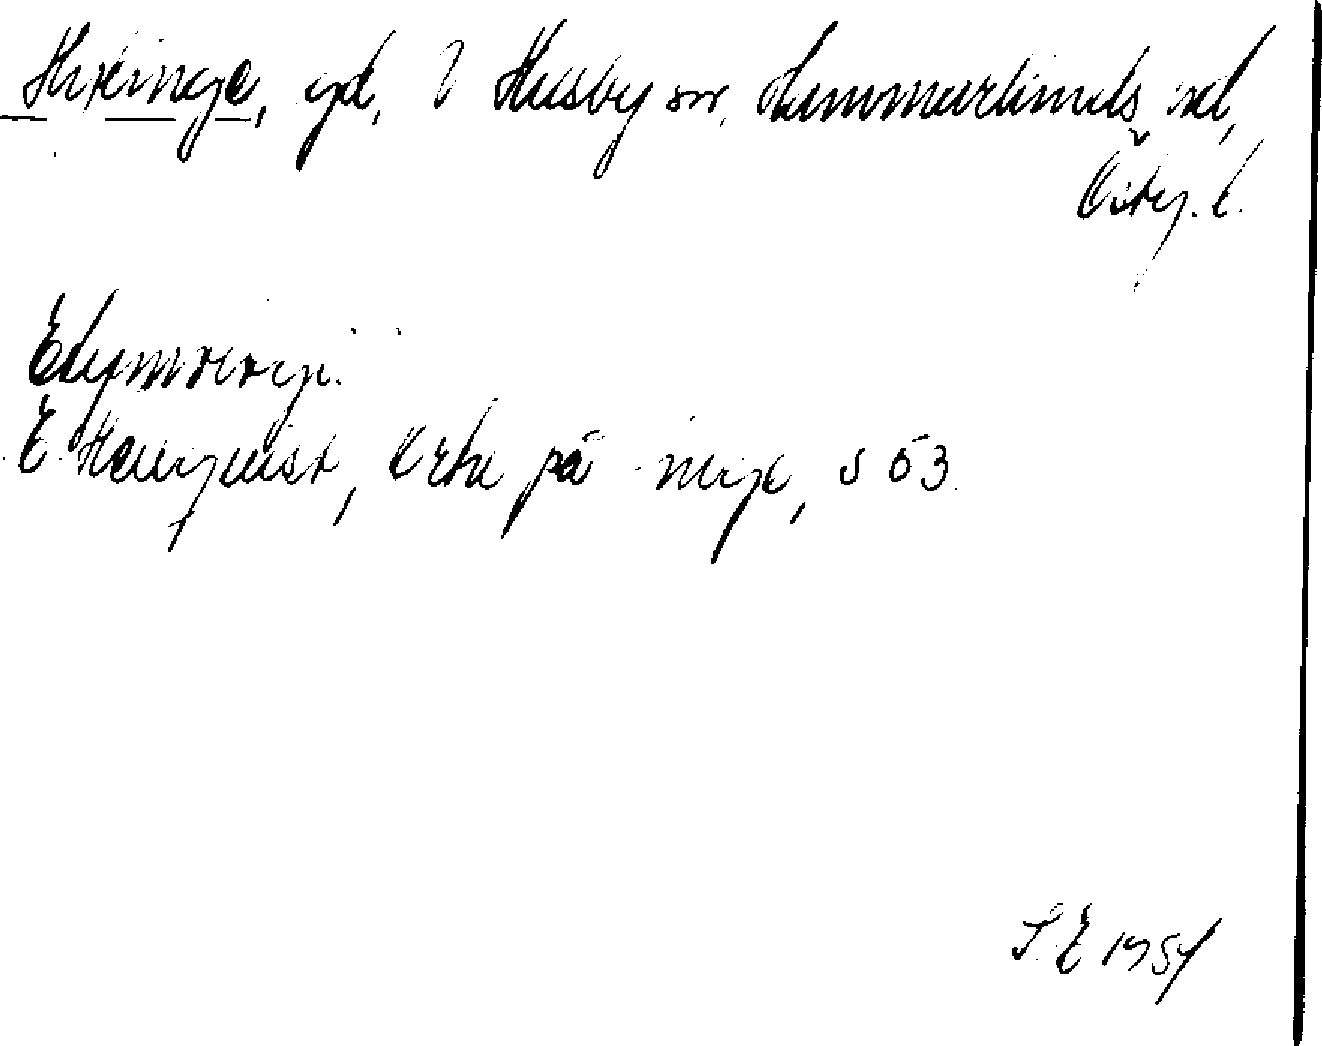 gd, i Husby sn, Hammarkinds hd,
Östg. l.
Etymologi.
E. Hellquist, Ortn på -inge, s 53.
S. E 1954